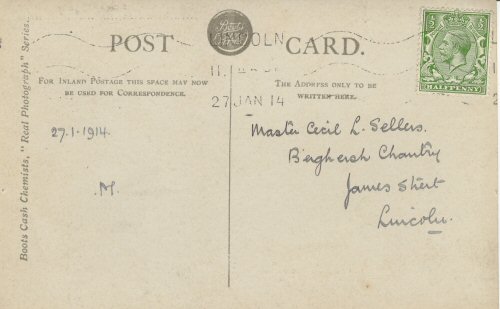 POST CARD.
Boots Cash Chemists
LINCOLN
27 JAN 14
HALFPENNY
FOR INLAND POSTAGE THIS SPACE MAY NOW
BE USED FOR CORRESPONDENCE.
THE ADDRESS ONLY TO BE
WRITTEN HERE.
27.1.1914.
.M.
Master Cecil L. Sellers.
Berghersh Chantry
James Street
Lincoln.
Boots Cash Chemists, "Real Photograph" Series.